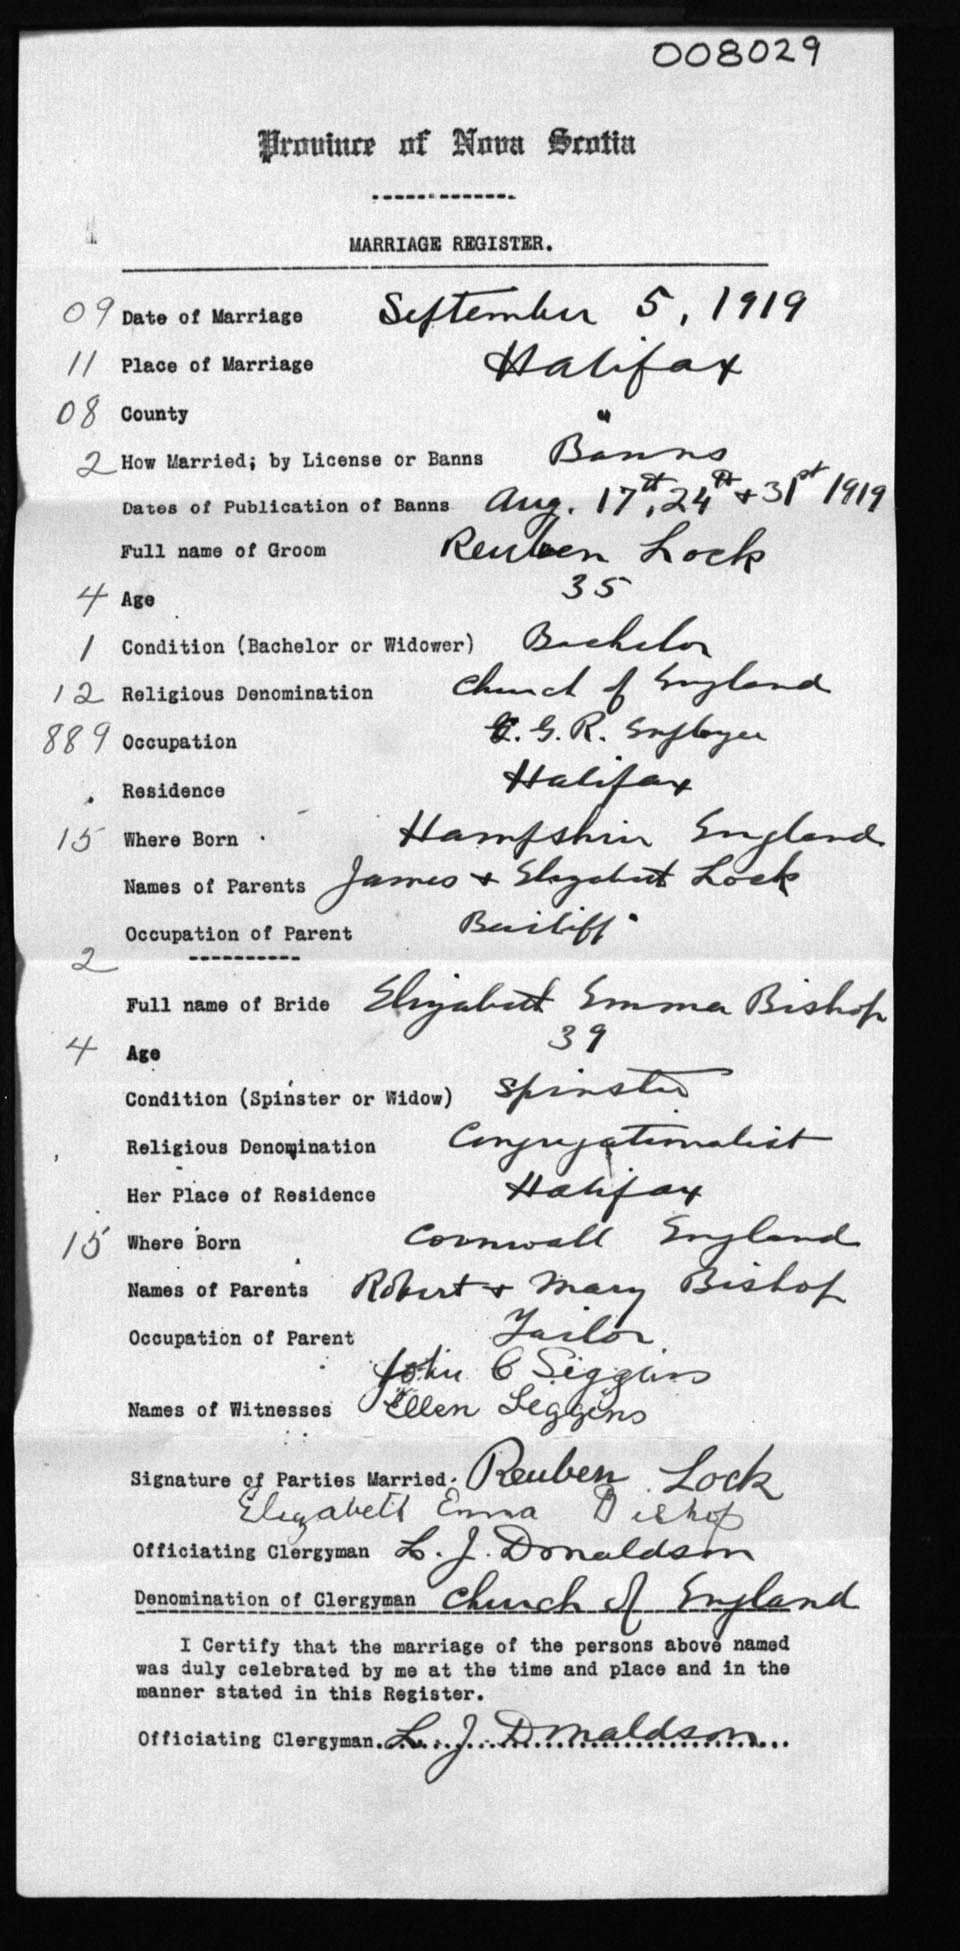 008029
Province of Nova Scotia
MARRIAGE REGISTER.
09 Date of Marriage September 5, 1919
11 Place of Marriage Halifax
08 County "
2 How Married; by License or Banns Banns
Dates of Publication of Banns Aug. 17th, 24th & 31st 1919
Full name of Groom Reuben Lock
4 Age 35
1 Condition (Bachelor or Widower) Bachelor
12 Religious Denomination Church of England
889 Occupation C. G. R. Employee
Residence Halifax
15 Where Born Hampshire England
Names of Parents James & Elizabeth Lock
Occupation of Parent Bailiff
2
Full name of Bride Elizabeth Emma Bishop
4 Age 39
Condition (Spinster or Widow) Spinster
Religious Denomination Congregationalist
Her Place of Residence Halifax
15 Where Born Cornwall England
Names of Parents Robert & Mary Bishop
Occupation of Parent Tailor
John C Seggins
Names of Witnesses Ellen Seggins
Signature of Parties Married. Reuben Lock
Elizabeth Emma Bishop
Officiating Clergyman L. J. Donaldson
Denomination of Clergyman Church of England
I Certify that the marriage of the persons above named
was duly celebrated by me at the time and place and in the
manner stated in this Register.
Officiating Clergyman. L. J. Donaldson